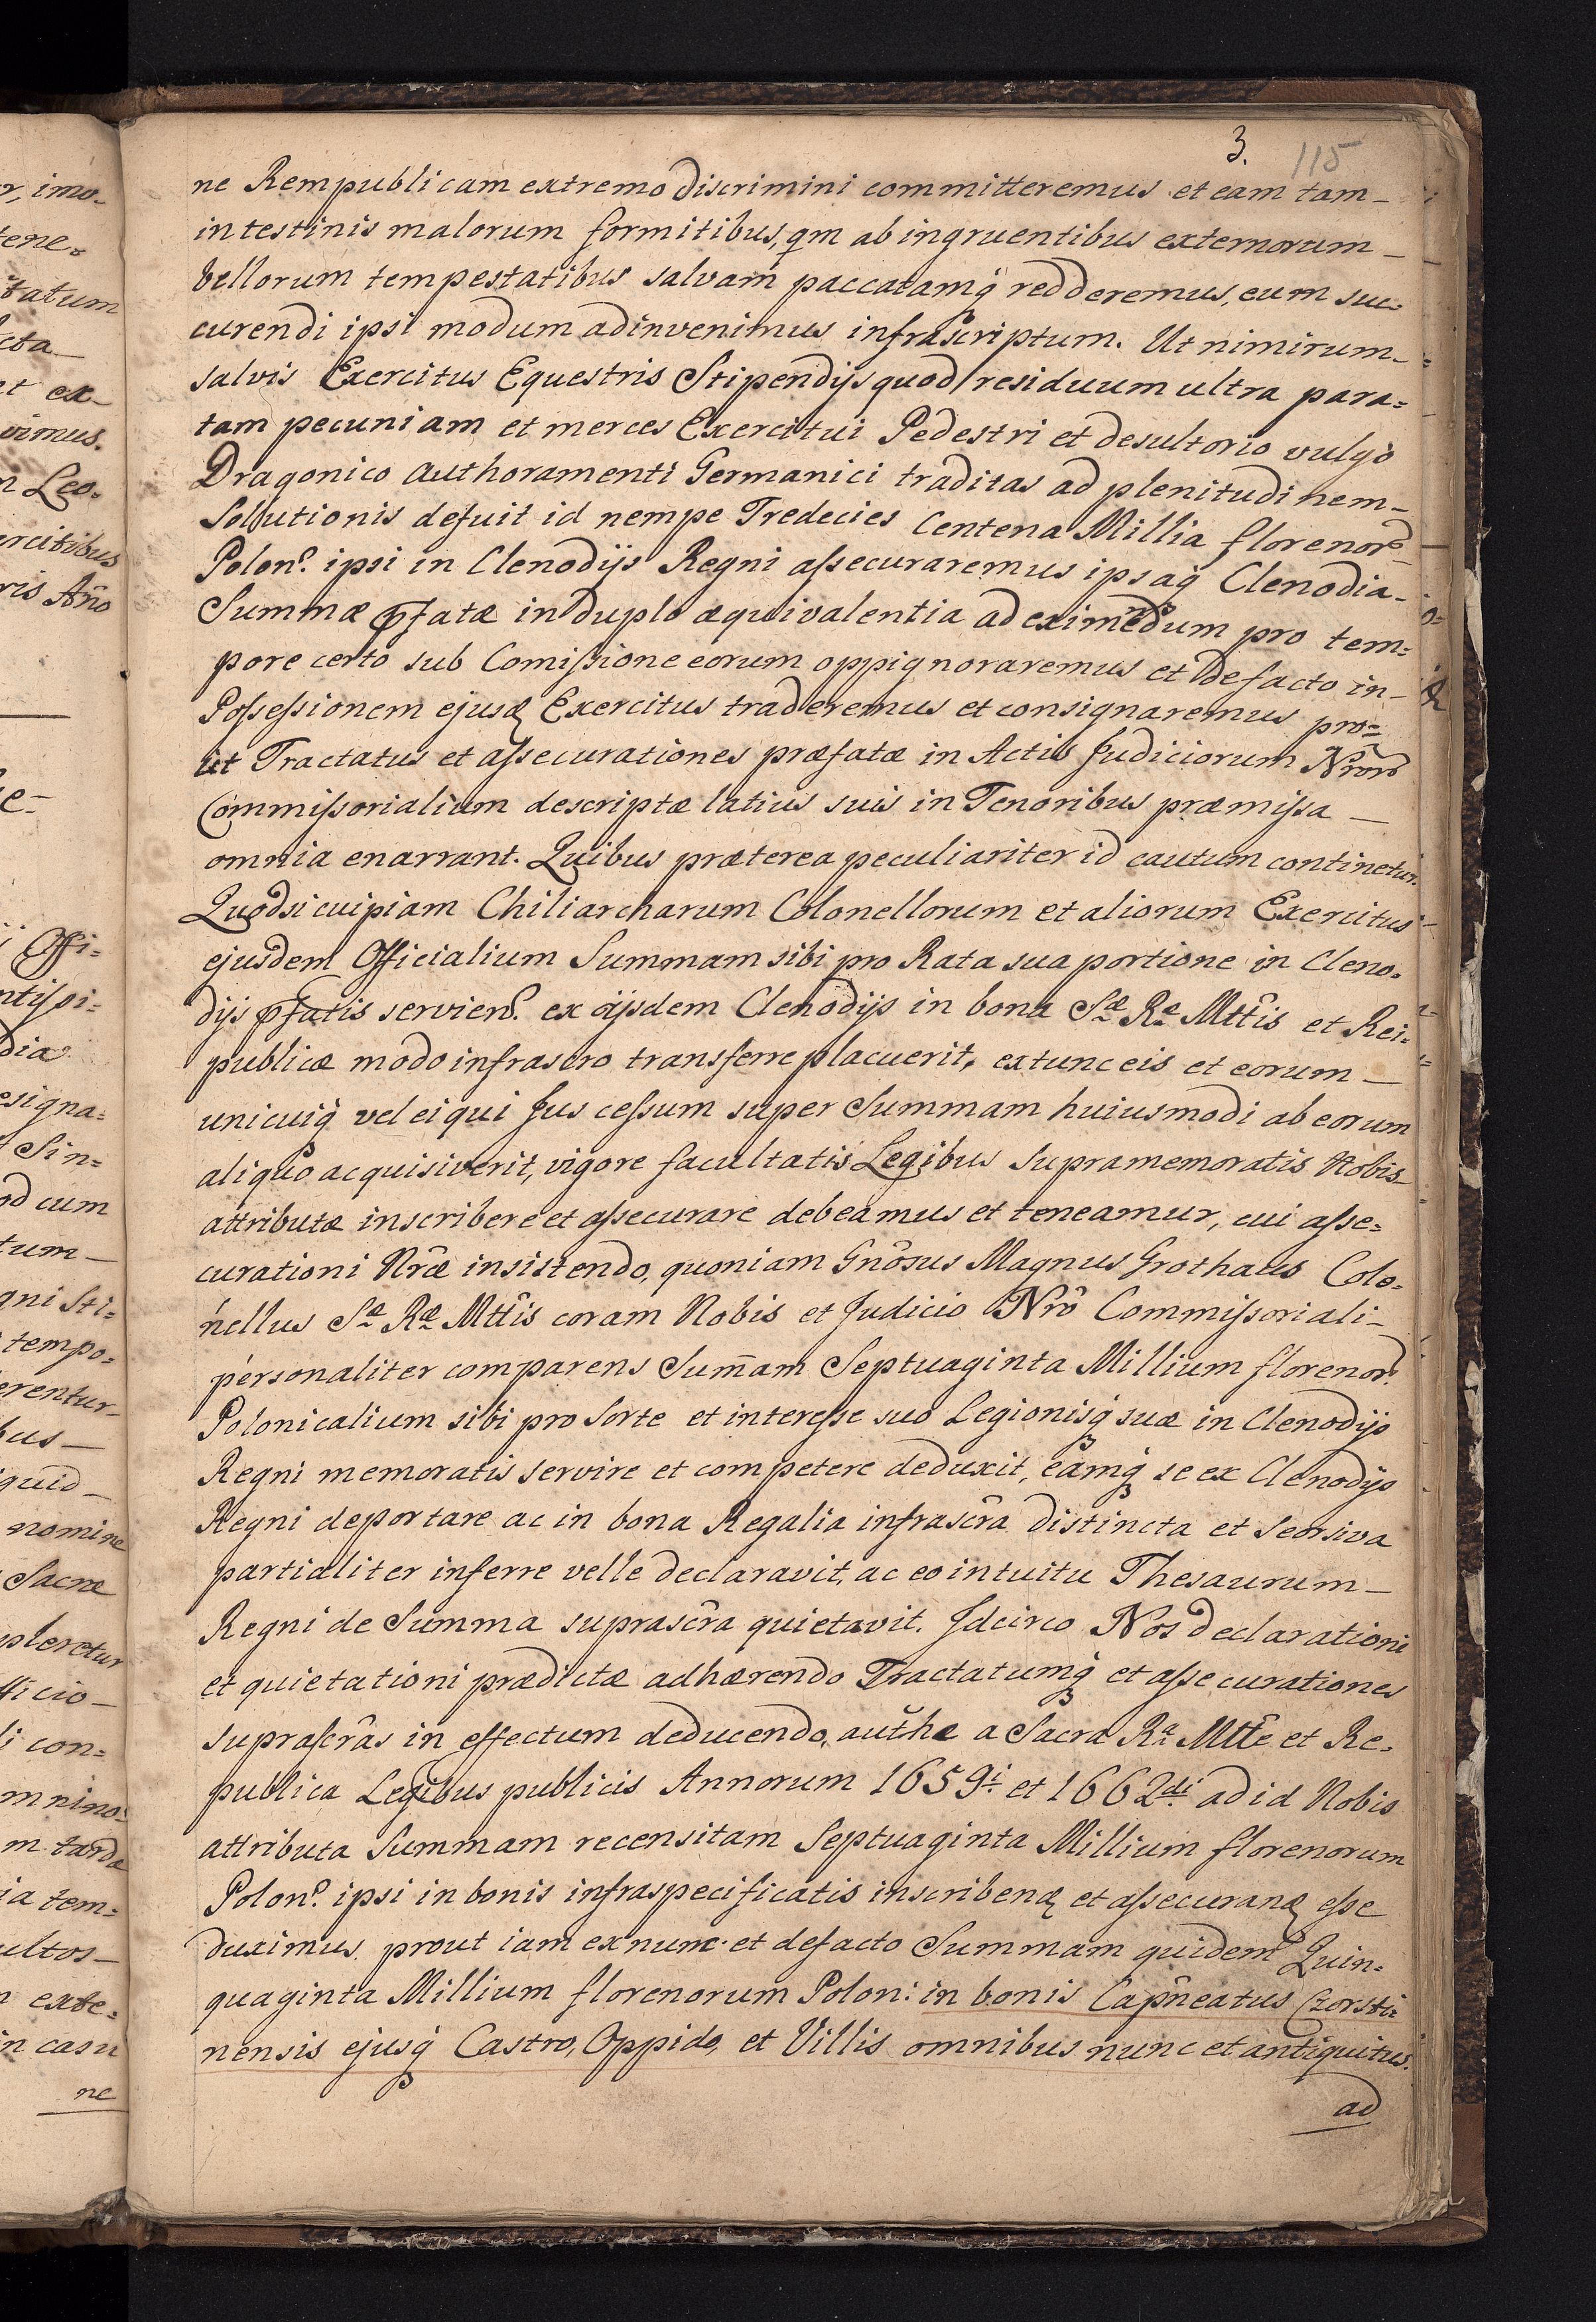 3. 115
ne Rempublicam extremo discrimini committeremus et eam tam_
intestinis malorum formitibus, qm ab ingruentibus externorum_
bellorum tempestatibus salvam paccatamq̃ redderemus, eum suc=
curendi ipsi modum adinvenimus infrascriptum. Ut nimirum_
salvis Exercitus Equestris Stipendijs quod residuum ultra para=
tam pecuniam et merces Exercitui Pedestri et desultorio vulgò
Dragonico authoramenti Germanici traditas ad plenitudinem_
Solutionis defuit id nempe Tredecies Centena Millia florenor̃
Polon̄. ipsi in Clenodijs Regni assecuraremus ipsaq̃ Clenodia_
Summæ pfatæ in duplo æquivalentia ad eximẽdum pro tem=
pore certo sub Comissione eorum oppignoraremus et de facto in_
Possessionem ejusd Exercitus traderemus et consignaremus pro=
ut Tractatus et assecurationes præfatæ in Actis Judiciorum Nrõr
Commissorialium descriptæ latius suis in Tenoribus præmissa_
omnia enarrant. Quibus præterea peculiariter id cautum continetur.
Quodsi cuipiam Chiliarcharum Colonellorum et aliorum Exercitus
ejusdem Officialium Summam sibi pro Rata sua portione in Cleno=
dijs pfatis servien̄. ex ijsdem Clenodijs in bona Sæ Ræ Mttis et Rei=
publicæ modo infrascro transferre placuerit, extunc eis et eorum_
unicuiq̃ vel ei qui Jus cessum super Summam huiusmodi ab eorum
aliquo acquisiverit, vigore facultatis Legibus supramemoratis Nobis_
attributæ inscribere et assecurare debeamus et teneamur, cui asse=
curationi Nræ̃ insistendo, quoniam Gnõsus Magnus Grothaus Colo=
nellus Sæ Ræ Mttis coram Nobis et Judicio Nrõ Commissoriali_
personaliter comparens Sum̃am Septuaginta Millium florenor̃
Polonicalium sibi pro Sorte et interesse suo Legionisq̃ suæ in Clenodijs
Regni memoratis servire et competere deduxit, eamq̃ se ex Clenodijs
Regni deportare ac in bona Regalia infrascrã distincta et seorsiva
partialiter inferre velle declaravit, ac eo intuitu Thesaurum_
Regni de Summa suprascrã quietavit. Idcirco Nos declarationi
et quietationi prædictæ adhærendo Tractatumq̃ et assecurationes
suprascrãs in effectum deducendo, authe a Sacra Ra Mtte et Re=
publica Legibus publicis Annorum 1659i et 1662di ad id Nobis
attributa Summam recensitam Septuaginta Millium florenorum
Polon̄. ipsi in bonis infraspecificatis inscribend et assecurand esse
duximus, prout iam ex nunc et defacto Summam quidem Quin=
quaginta Millium florenorum Polon: in bonis Capñeatus Czorsti
nensis ejusq̃ Castro, Oppido, et Villis omnibus nunc et antiquitus.
ad